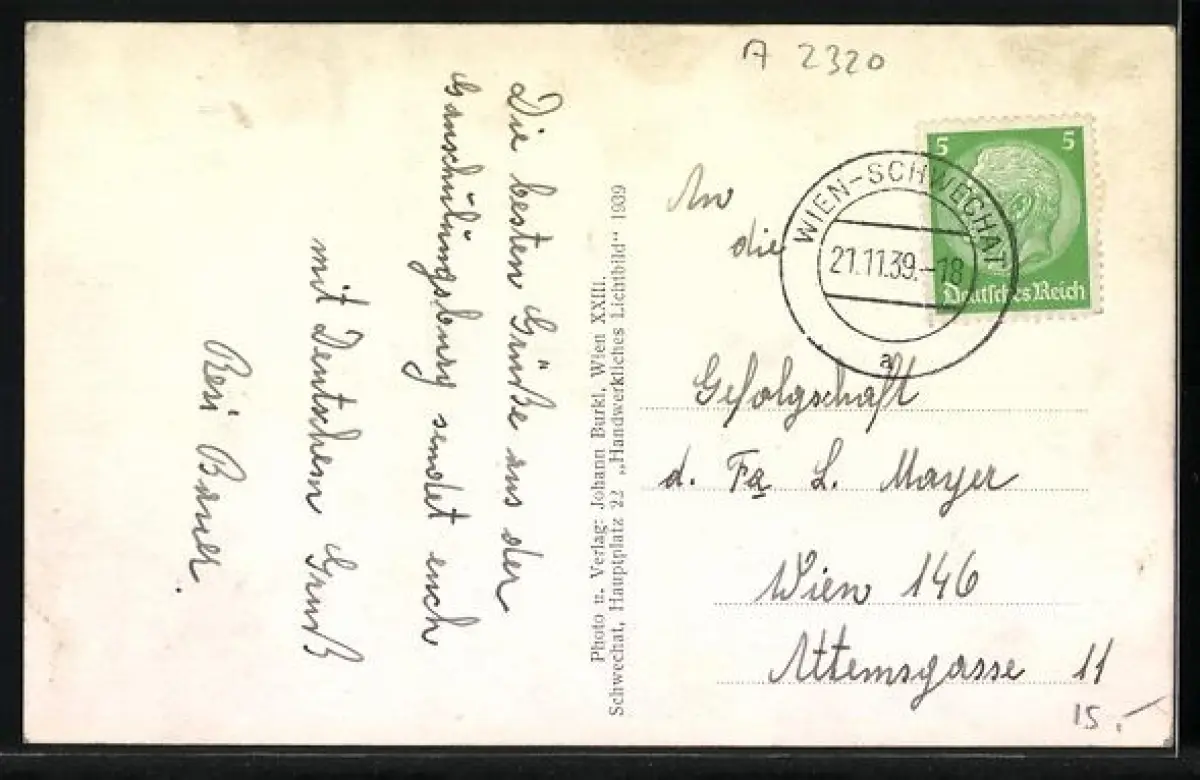 A 2320
Die besten Grüße aus der
Ganschulungsburg sendet euch
mit Deutschem Gruß
Resi Bauer.
Photo u. Verlag: Johann Burkl, Wien XXIII.
Schwechat, Hauptplatz 22 „Handwerkliches Lichtbild" 1939
5 5
Deutsches Reich
WIEN-SCHWECHAT
21.11.39.-18
a
An
die
Gefolgschaft
d. Fa L. Mayer
Wien 146
Attemsgasse 11
15.-